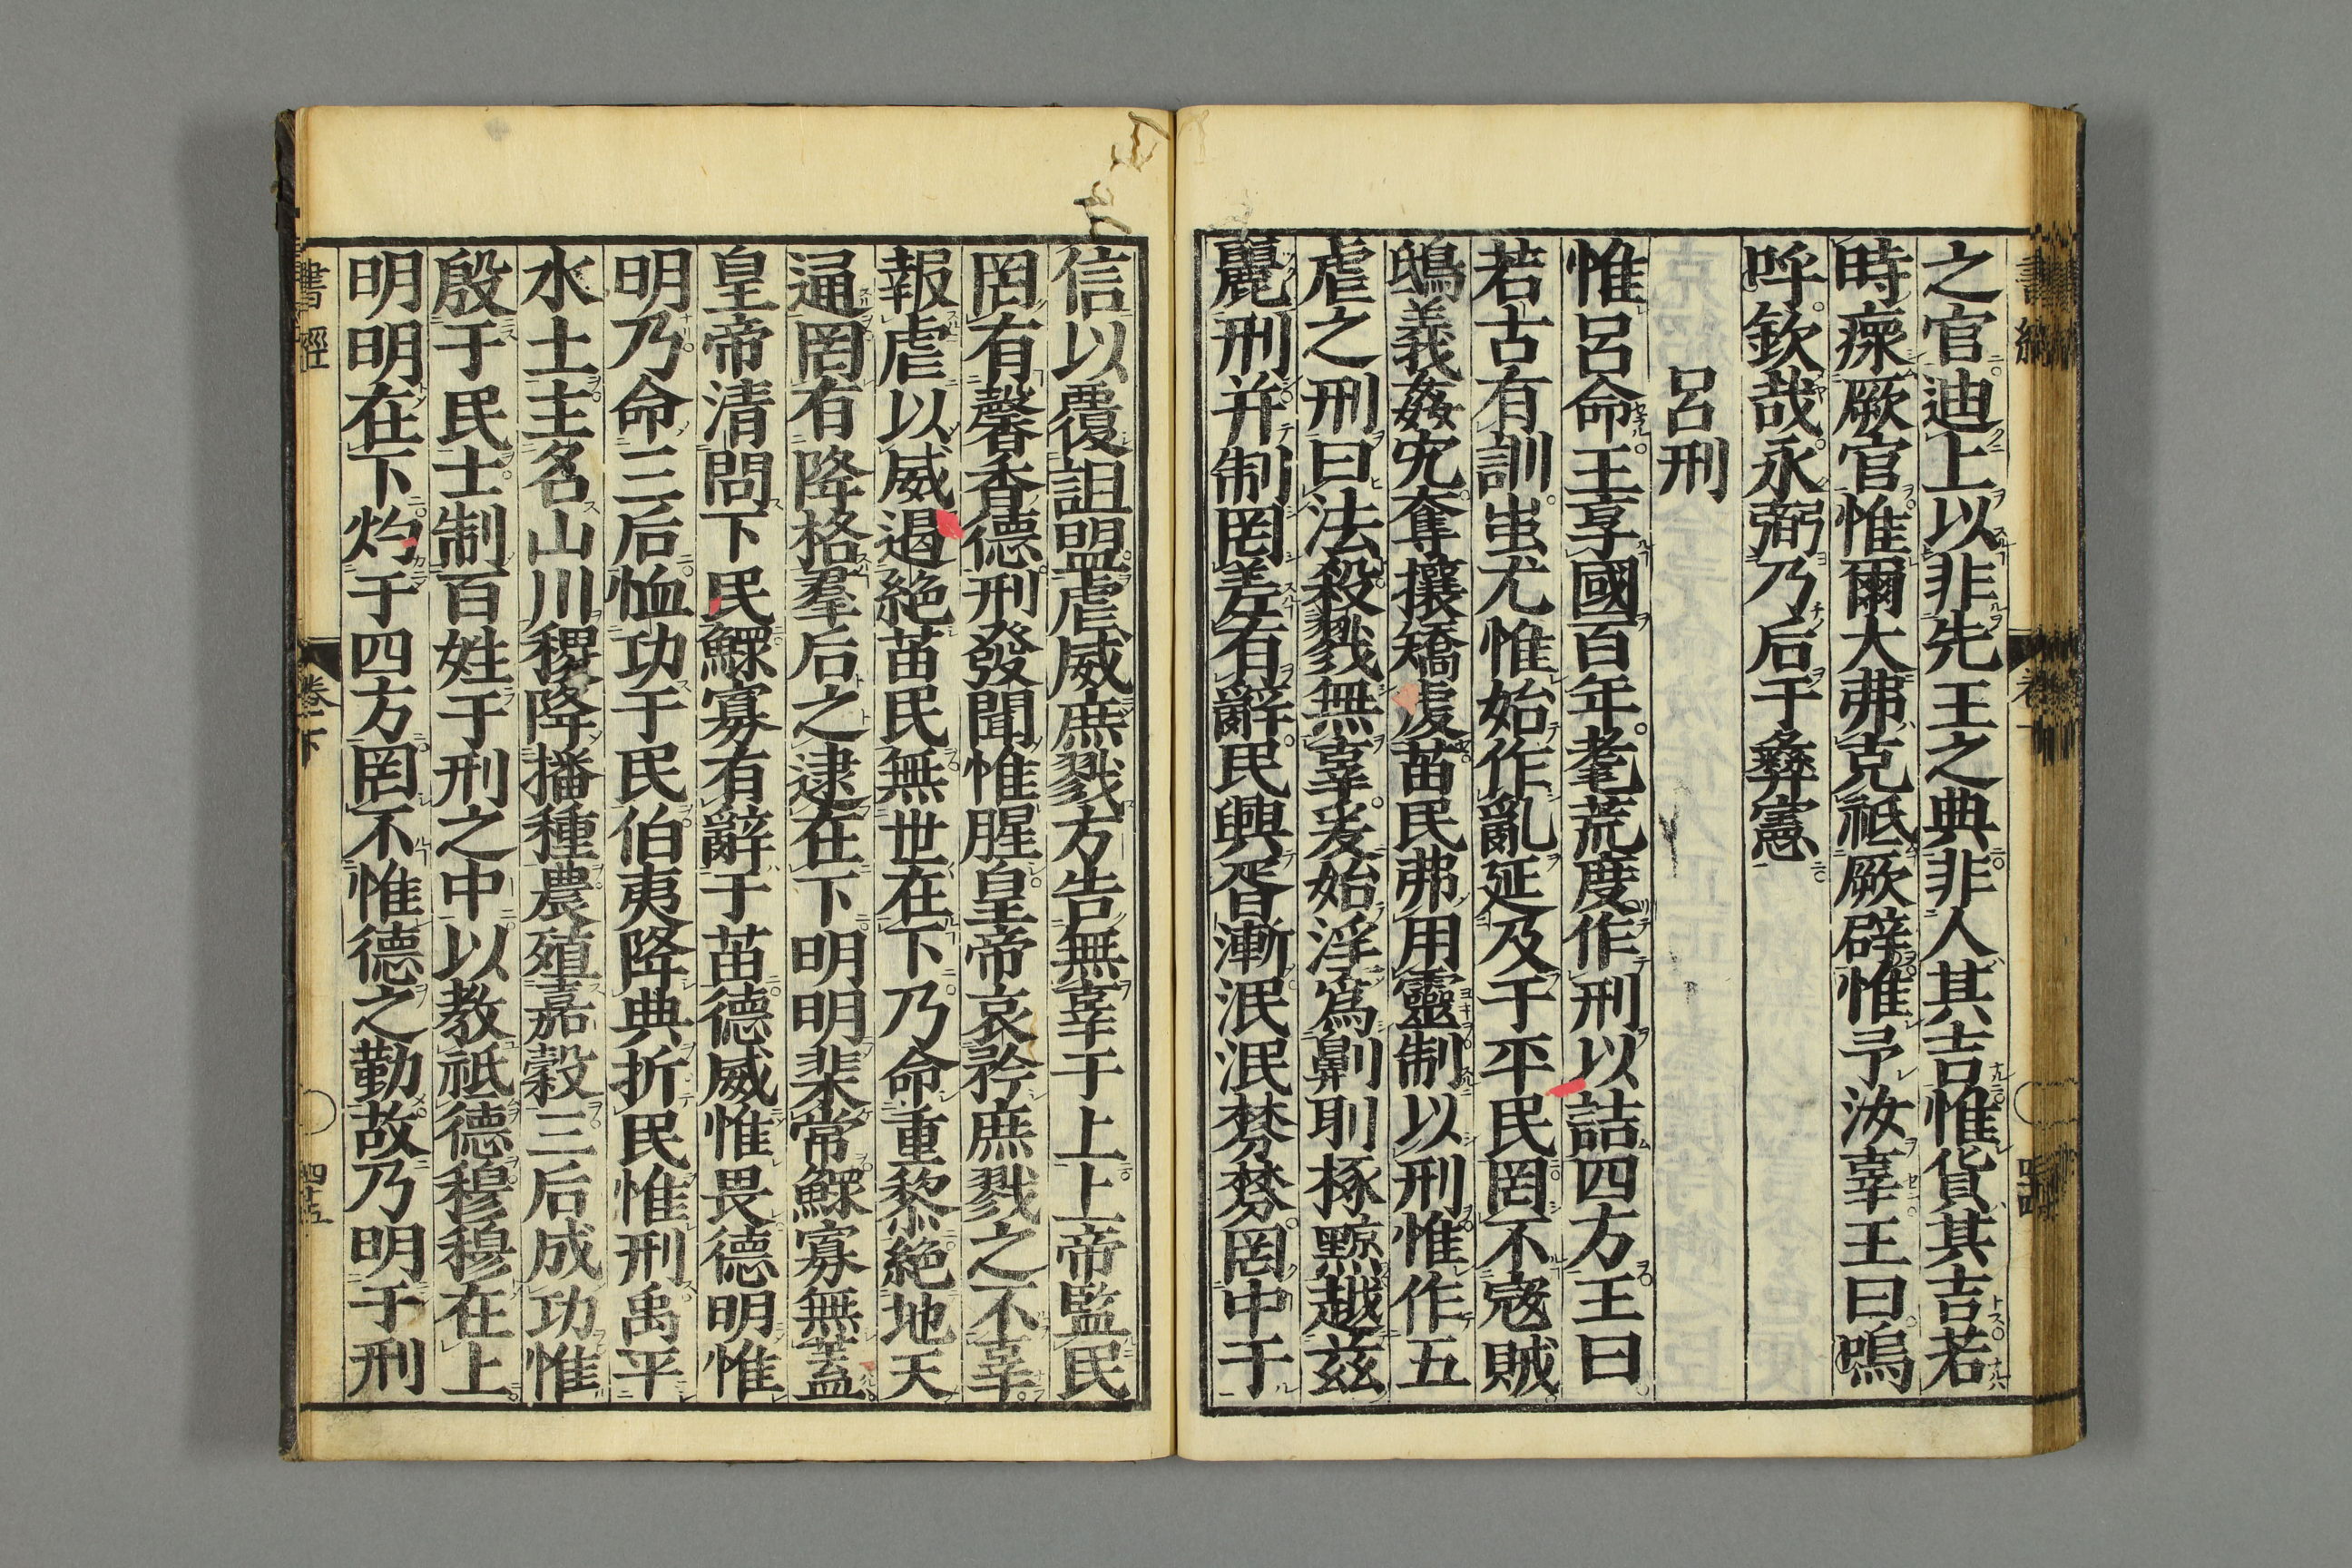 之官迪上以非先王之典非人其吉惟貨其吉若
時瘝厥官惟爾大弗克祗厥辟惟予汝辜王曰嗚
呼欽哉永弼乃后于彝憲
呂刑
惟呂命王享國百年耄荒度作刑以詰四方王曰
若古有訓蚩尤惟始作亂延及于平民罔不寇賊
鴟義姦宄奪攘矯虔苗民弗用靈制以刑惟作五
虐之刑曰法殺戮無辜爰始淫爲劓刵椓黥越茲
麗刑并制罔差有辭民興胥漸泯泯棼棼罔中于
信以覆詛盟虐威庶戮方告無辜于上上帝監民
罔有馨香德刑發聞惟腥皇帝哀矜庶戮之不辜
報虐以威遏絶苗民無世在下乃命重黎絶地天
通罔有降格羣后之逮在下明明棐常鰥寡無蓋
皇帝清問下民鰥寡有辭于苗德威惟畏德明惟
明乃命三后恤功于民伯夷降典折民惟刑禹平
水土主名山川稷降播種農殖嘉穀三后成功惟
殷于民士制百姓于刑之中以教祗德穆穆在上
明明在下灼于四方罔不惟德之勤故乃明于刑
書經 卷下 四十五